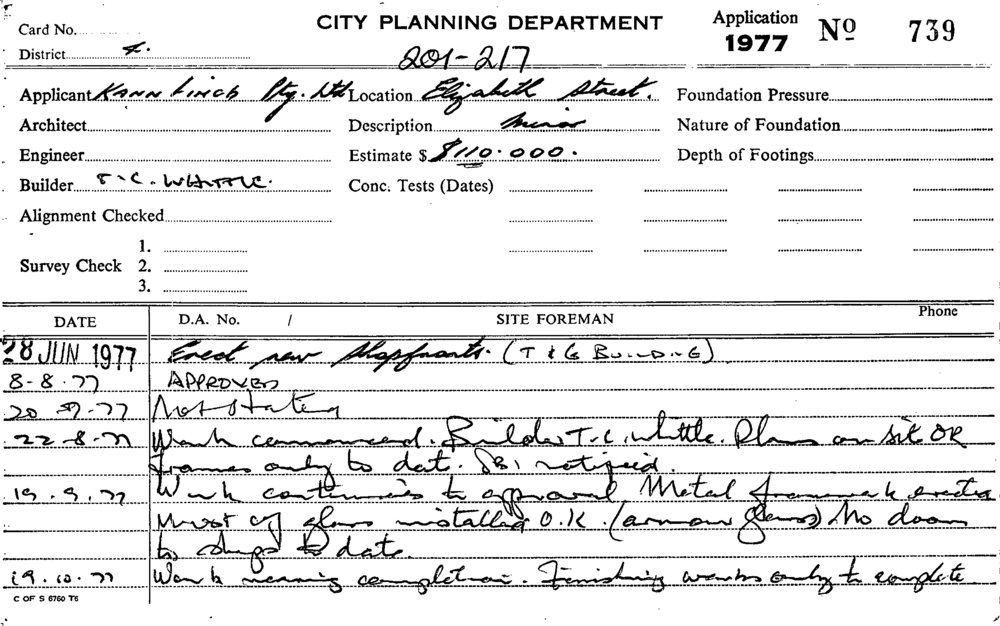 Card No.
CITY PLANNING DEPARTMENT
Application 1977 No 739
District 4.
201-217
Applicant Kann Finch Pty. Ltd Location Elizabeth Street. Foundation Pressure
Architect Description Minor Nature of Foundation
Engineer Estimate $ $110.000. Depth of Footings
Builder T.C. WHITTLE. Conc. Tests (Dates)
Alignment Checked
1.
Survey Check 2.
3.
DATE D.A. No. / SITE FOREMAN Phone
28 JUN 1977 Erect new Shopfronts. (T & G BUILDING)
8-8-77 APPROVED
20 77 Not Started
22-8-77 Work commenced. Builder T.C. Whittle. Plans on site OK
frames only to date. notified.
19.9.77 Work continues to approval Metal framework erected
Most of glass installed O.K. (armour glass) No doors
to shops to date.
19.10.77 Work nearing completion. Finishing works only to complete
C OF S 6760 T6